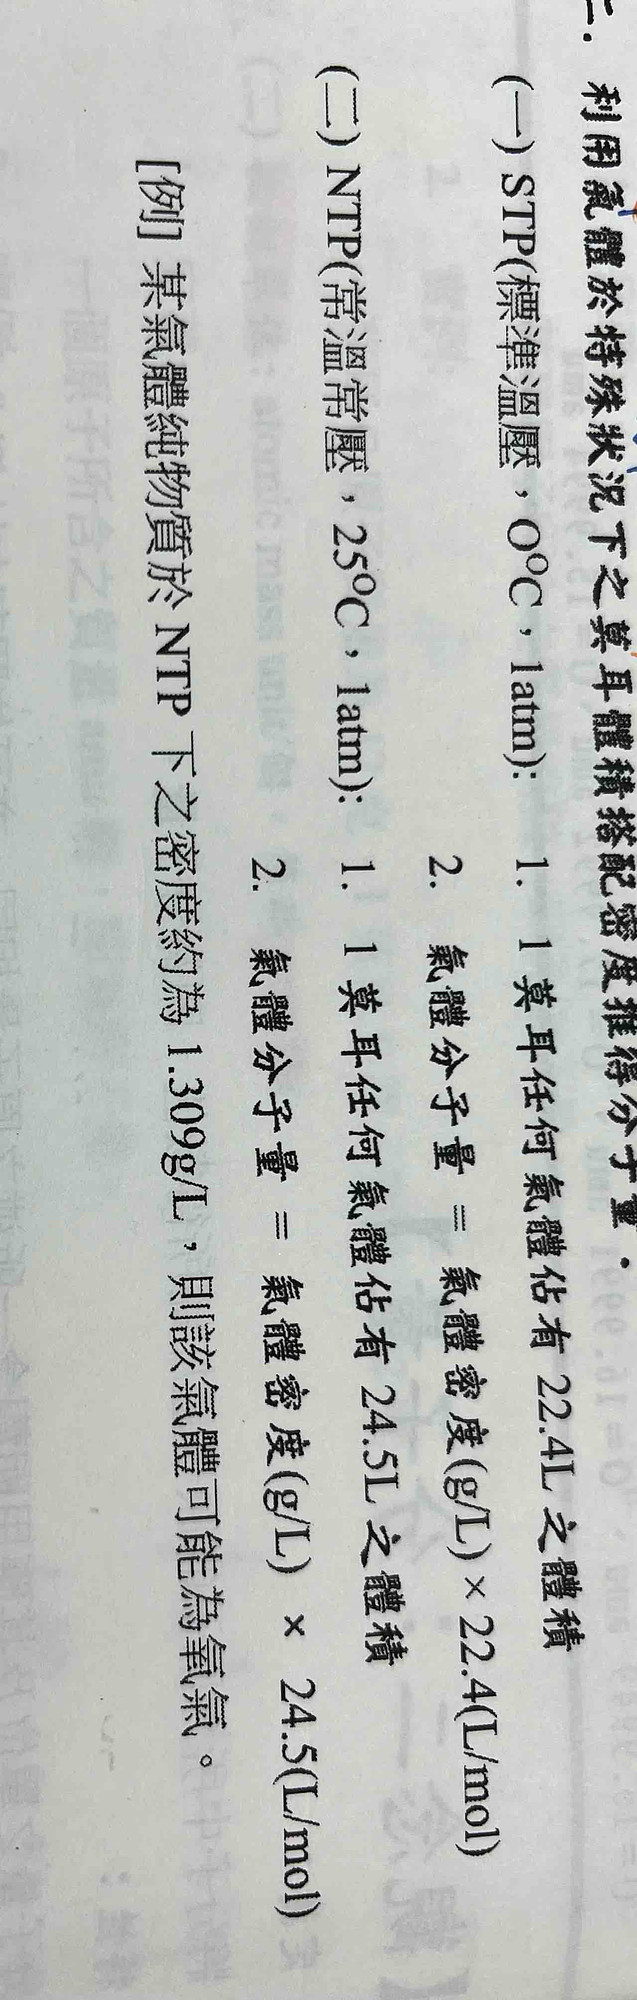 二. 利用氣體於特殊狀況下之莫耳體積搭配密度推得分子量.
(一) STP(標準溫壓，0⁰C，1atm):
1. 1 莫耳任何氣體佔有 22.4L 之體積
2. 氣體分子量 = 氣體密度(g/L) × 22.4(L/mol)
(二) NTP(常溫常壓，25⁰C，1atm):
1. 1 莫耳任何氣體佔有 24.5L 之體積
2. 氣體分子量 = 氣體密度(g/L) × 24.5(L/mol)
[例] 某氣體純物質於 NTP 下之密度約為 1.309g/L，則該氣體可能為氧氣。